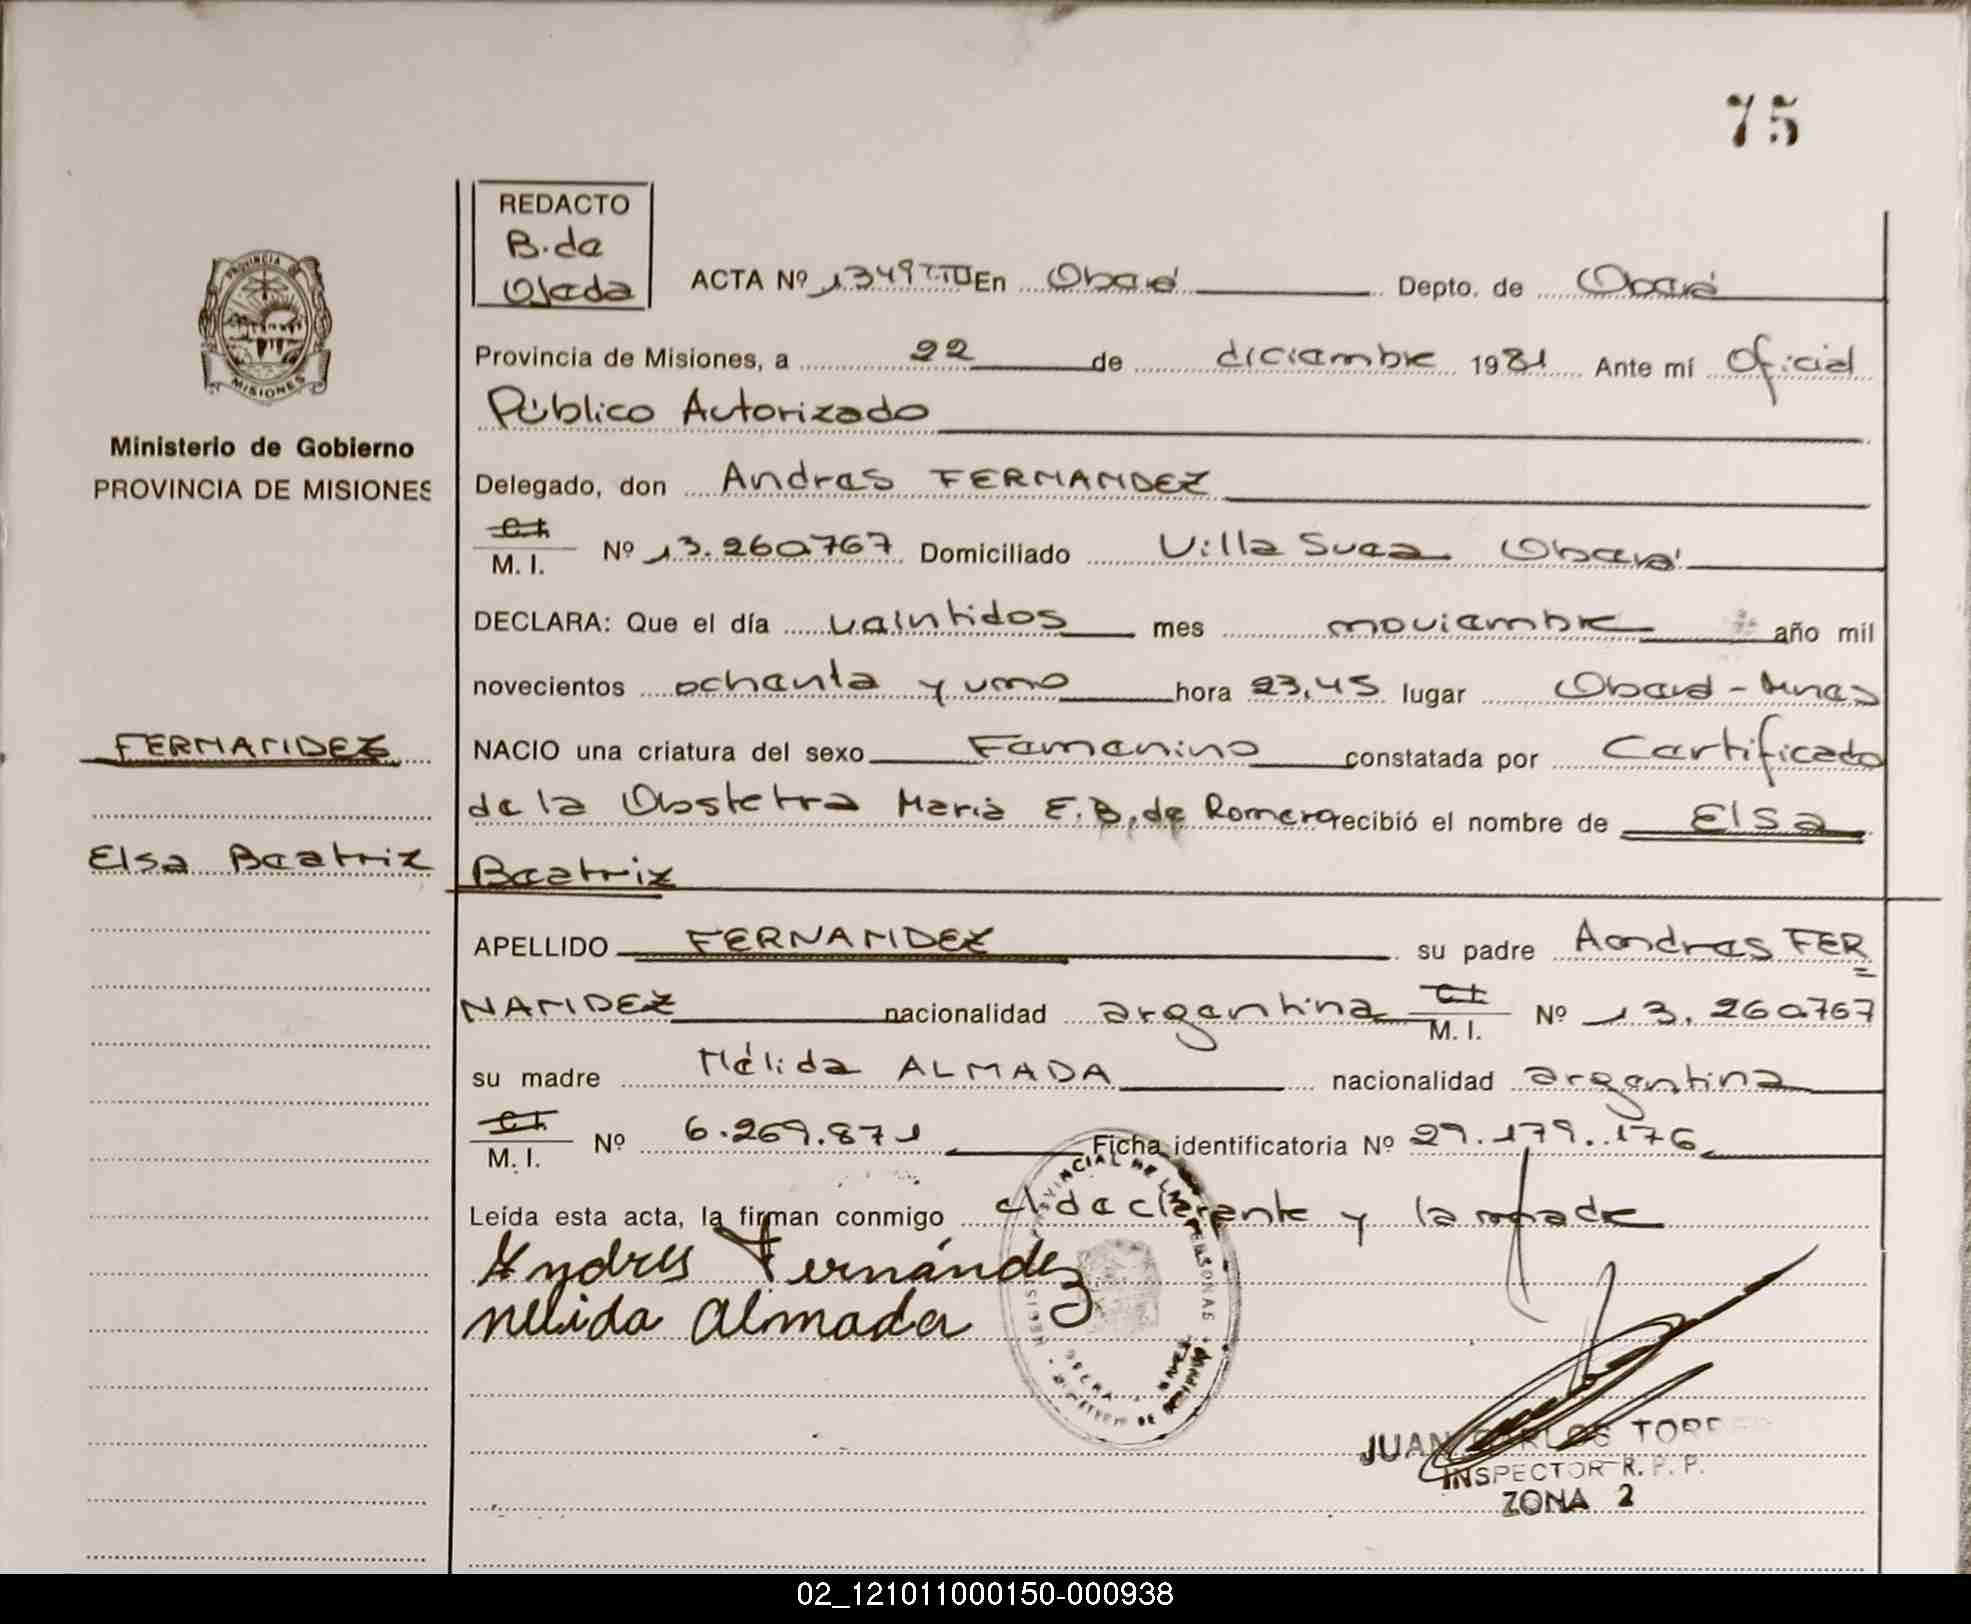 75
REDACTO
B. de
Ojeda
ACTA Nº 1349 TºIII En Oberá Depto. de Oberá
Provincia de Misiones, a 22 de diciembre 1981 Ante mí Oficial
Público Autorizado
PROVINCIA DE MISIONES
Ministerio de Gobierno
PROVINCIA DE MISIONES
Delegado, don Andres FERNANDEZ
C.I.
M. I. Nº 13.260767 Domiciliado Villa Suea Oberá
DECLARA: Que el día veintidos mes noviembre año mil
novecientos ochenta y uno hora 23,45 lugar Oberá - Mnes
FERNANDEZ
NACIO una criatura del sexo Femenino constatada por Certificado
de la Obstetra Maria E. B. de Romero recibió el nombre de Elsa
Elsa Beatriz
Beatriz
APELLIDO FERNANDEZ su padre Andres FER
NANDEZ nacionalidad argentina C.I. M. I. Nº 13.260767
su madre Nélida ALMADA nacionalidad argentina
C.I.
M. I. Nº 6.269.871 Ficha identificatoria Nº 29.179.176
Leída esta acta, la firman conmigo el declarante y la madre
Andres Fernández
nelida Almada
JUAN CARLOS TORRES
INSPECTOR R. P. P.
ZONA 2
02_121011000150-000938